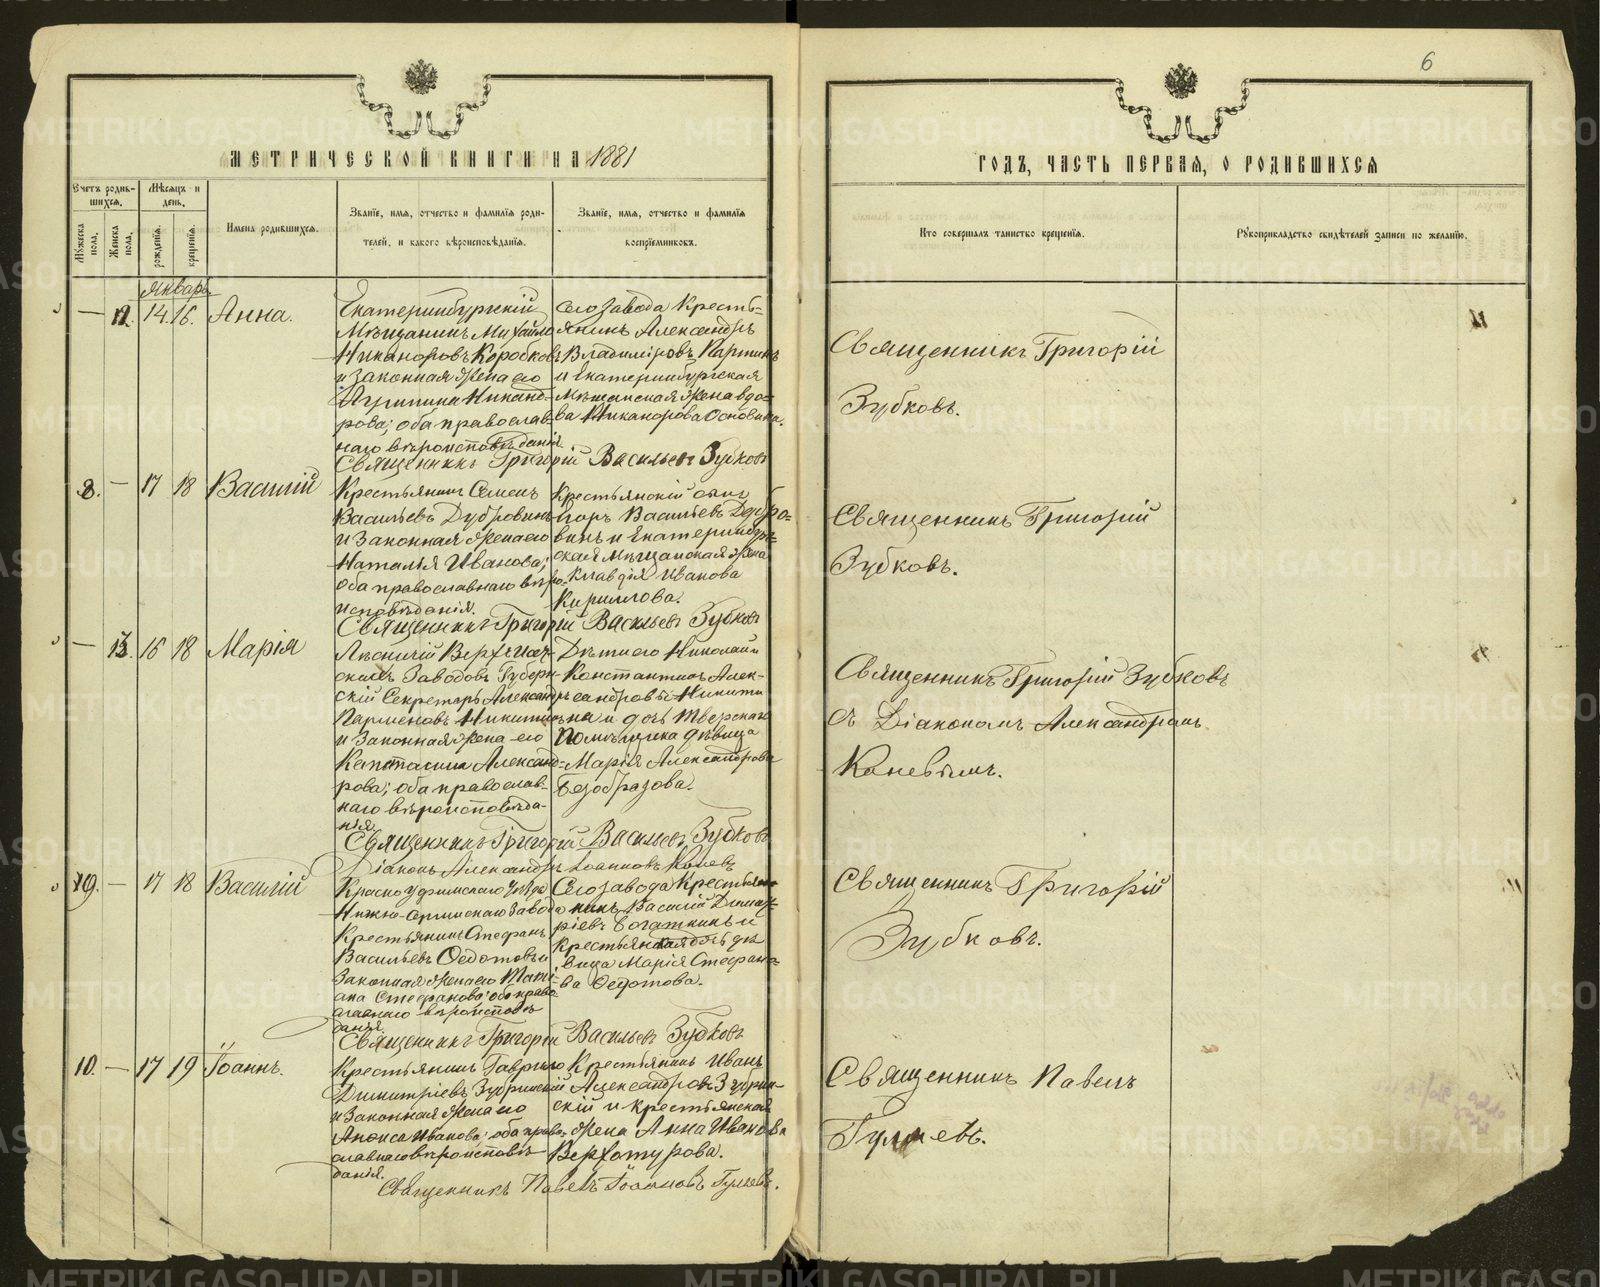 6
МЕТРИЧЕСКОЙ КНИГИ НА 1881
ГОДЪ, ЧАСТЬ ПЕРВАЯ, О РОДИВШИХСЯ
Счетъ родившихся.
Мужеска пола.
Женска пола.
Мѣсяцъ и день.
рожденія.
крещенія.
Имена родившихся.
Званіе, имя, отчество и фамилія роди-
телей, и какого вѣроисповѣданія.
Званіе, имя, отчество и фамилія
воспріемниковъ.
Кто совершалъ таинство крещенія.
Рукоприкладство свидѣтелей записи по желанію.
Январь
— 12. 14. 16. Анна.
Екатеринбургскій
Мѣщанинъ Михайло
Никаноровъ Коробковъ
и законная жена его
Агрипина Никанд-
рова; оба православ-
наго вѣроисповѣданія.
сего завода Кресть-
янинъ Александръ
Владиміровъ Паршинъ
и Екатеринбургская
Мѣщанская жена вдо-
ва Никанорова
Священникъ Григорій
Зубковъ.
Священникъ Григорій Васильевъ Зубковъ
8. — 17 18 Василій
Крестьянинъ Семенъ
Васильевъ Дубровинъ
и законная жена его
Наталія Иванова;
оба православнаго вѣро-
исповѣданія.
Крестьянскій сынъ
Егоръ Васильевъ Дубро-
винъ и Екатеринбург-
ская Мѣщанская жена
Клавдія Иванова
Кириллова.
Священникъ Григорій
Зубковъ.
Священникъ Григорій Васильевъ Зубковъ
— 13. 16 18 Марія
Лѣсничій Верхъ-Исет-
скихъ Заводовъ Губерн-
скій Секретарь Александръ
Парменовъ Никитинъ
и законная жена его
Капиталина Александ-
рова; оба православ-
наго вѣроисповѣда-
нія.
Дѣти его Николай и
Константинъ Алек-
сандровы Никити-
на и дочь Тверскаго
Помѣщика дѣвица
Марія Александрова
Безобразова.
Священникъ Григорій Зубковъ
съ Діакономъ Александромъ
Каневымъ.
Священникъ Григорій Васильевъ Зубковъ
Діаконъ Александръ Іоанновъ Каневъ
9. — 17 18 Василій
Красноуфимскаго Уѣзда
Нижне-Сергинскаго Завода
Крестьянинъ Стефанъ
Васильевъ Ѳедотовъ и
законная жена его Тать-
яна Стефанова; оба право-
славнаго вѣроисповѣ-
данія.
Сего завода Крестья-
нинъ Василій Димит-
ріевъ Богаткинъ и
Крестьянская дочь дѣ-
вица Марія Стефано-
ва Ѳедотова.
Священникъ Григорій
Зубковъ.
Священникъ Григорій Васильевъ Зубковъ
10. — 17 19 Іоаннъ.
Крестьянинъ Гаврило
Димитріевъ Зубринскій
и законная жена его
Анфиса Иванова; оба право-
славнаго вѣроисповѣ-
данія.
Крестьянинъ Иванъ
Александровъ Зубрин-
скій и крестьянская
жена Анна Иванова
Верхотурова.
Священникъ Павелъ
Гуляевъ.
Священникъ Павелъ Іоанновъ Гуляевъ.
METRIKI.GASO-URAL.RU